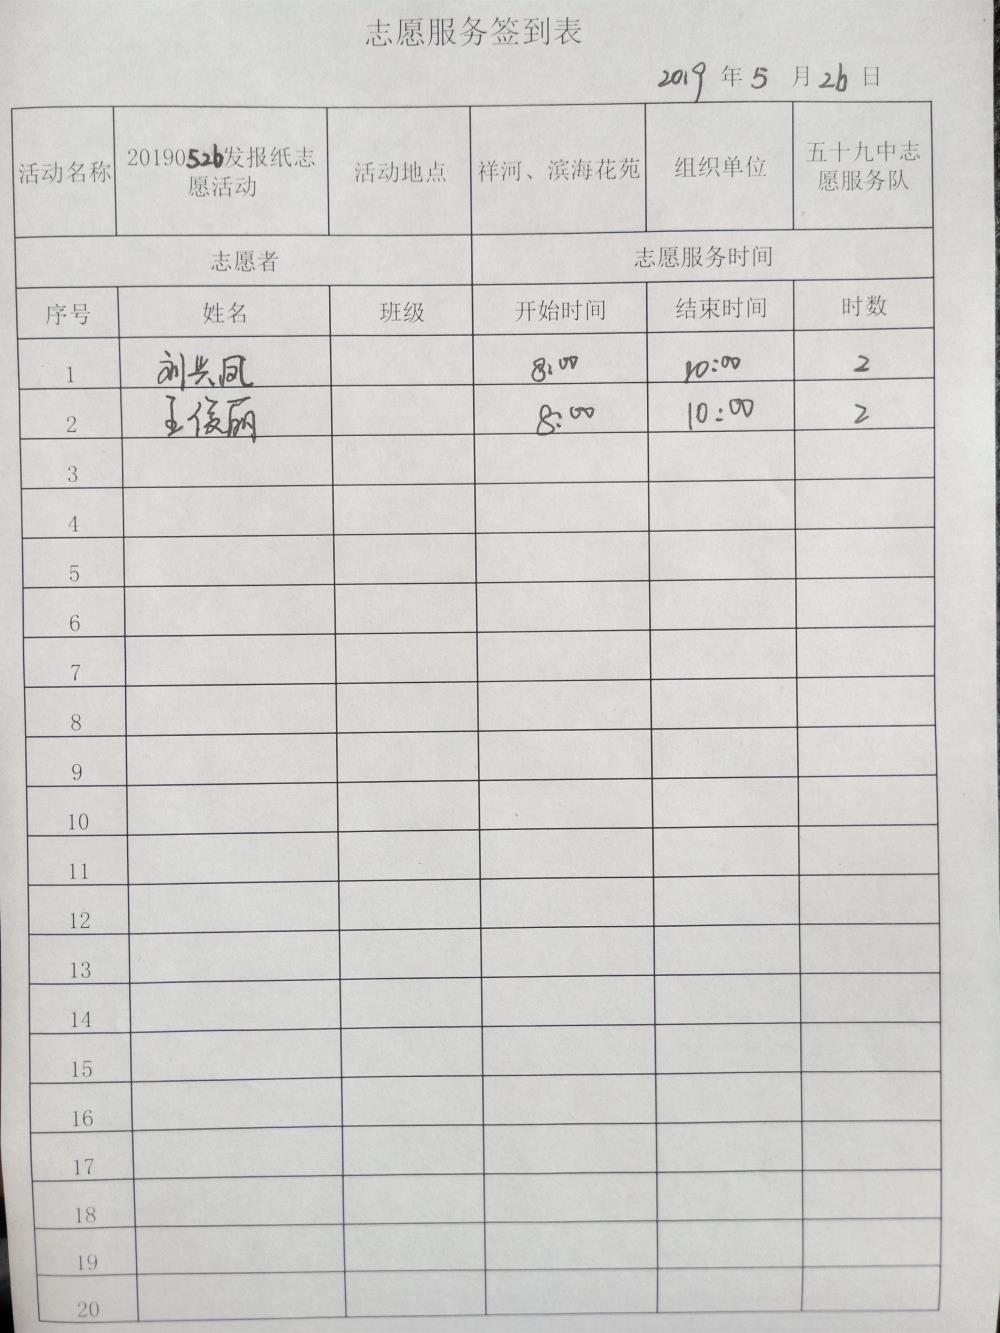 志愿服务签到表
2019 年 5 月 26 日
活动名称 20190526发报纸志愿活动 活动地点 祥河、滨海花苑 组织单位 五十九中志愿服务队
志愿者 志愿服务时间
序号 姓名 班级 开始时间 结束时间 时数
1 刘兴凤 8:00 10:00 2
2 王俊丽 8:00 10:00 2
3
4
5
6
7
8
9
10
11
12
13
14
15
16
17
18
19
20